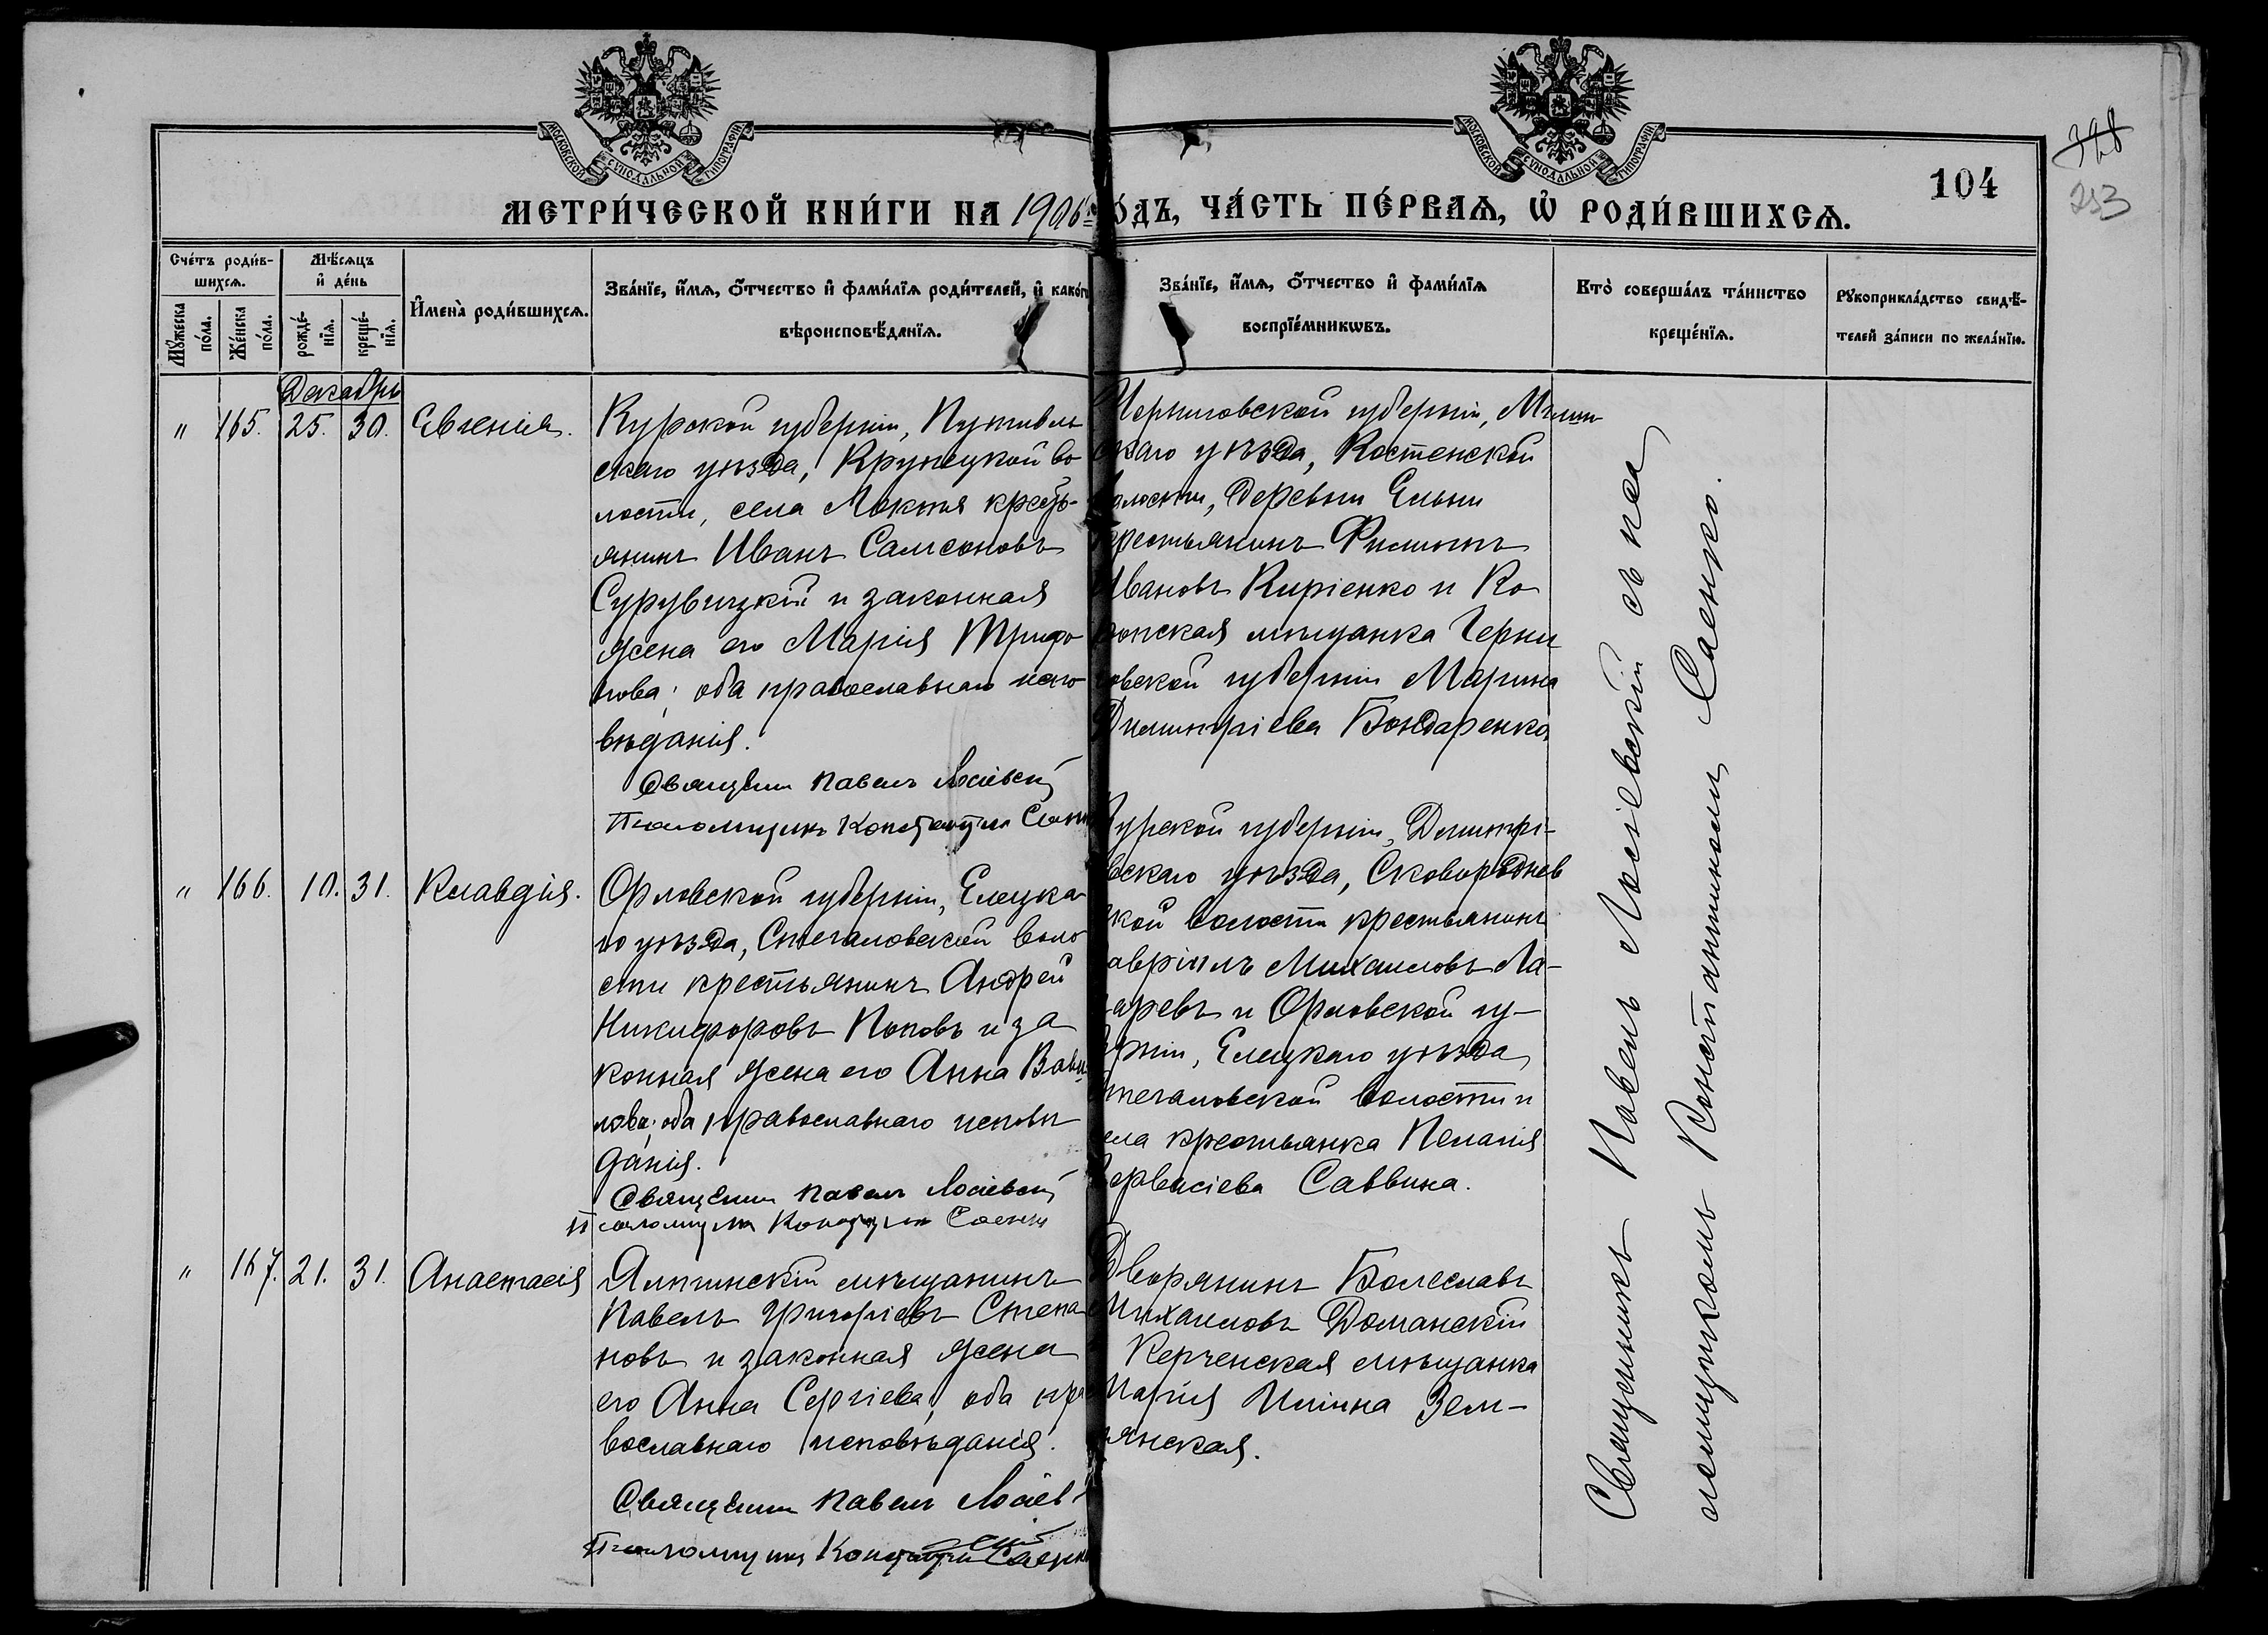 МОСКОВСКОЙ СѴНОДАЛЬНОЙ ТИПОГРАФІИ
МОСКОВСКОЙ СѴНОДАЛЬНОЙ ТИПОГРАФІИ
104
328
253
МЕТРИ́ЧЕСКОЙ КНИ́ГИ НА 1906 г҃о́дъ, ЧА́СТЬ ПЕ́РВАѦ, Ѡ҆ РОДИ́ВШИХСѦ.
Сче́тъ роди́в-
шихсѧ.
Мꙋ́жеска по́ла.
Же́нска по́ла.
Мѣ́сѧцъ
и҆ де́нь
рожде́-
нїѧ.
креще́-
нїѧ.
И҆мена̀ роди́вшихсѧ.
Зва́нїе, и҆́мѧ, ѻ҆́тчество и҆ фами́лїѧ роди́телей, и҆ како́гѡ
вѣроисповѣ́данїѧ.
Зва́нїе, и҆́мѧ, ѻ҆́тчество и҆ фами́лїѧ
воспрїе́мникѡвъ.
Кто̀ соверша́лъ та́инство
креще́нїѧ.
Рꙋкоприкла́дство свидѣ́-
телей за́писи по жела́нїю.
Декабрь
" 165. 25. 30. Евгенія.
Курской губерніи, Путивль
скаго уѣзда, Крупецкой во
лости, села Локтя кресть-
янинъ Иванъ Самсоновъ
Сурувицкій и законная
жена его Марія Трифо
нова; оба православнаго испо
вѣданія.
Священни Павелъ Лосіевскій
Псаломщикъ Константин Саенк
Черниговской губерніи, Мглин
скаго уѣзда, Костенской
волости, деревни Ельни
крестьянинъ Филиппъ
Ивановъ Киріенко и Ко
ропская мѣщанка Черни
говской губерніи Марина
Димитріева Бондаренко.
" 166. 10. 31. Клавдія.
Орловской губерніи, Елецка
го уѣзда, Стегаловской воло
сти крестьянинъ Андрей
Никифоровъ Поповъ и за
конная жена его Анна Вави
лова; оба православнаго исповѣ
данія.
Священни Павелъ Лосіевскій
Псаломщикъ Константин Саенк
Курской губерніи, Димитрі-
евскаго уѣзда, Сковороднев
ской волости крестьянинъ
Гавріилъ Михаиловъ Ла-
заревъ и Орловской гу-
берніи, Елецкаго уѣзда,
Стегаловской волости и
села крестьянка Пелагія
Гервасіева Саввина.
" 167. 21. 31. Анастасія
Ялтинскій мѣщанинъ
Павелъ Григоріевъ Степа
новъ и законная жена
его Анна Сергіева, оба пра
вославнаго исповѣданія.
Священни Павелъ Лосіев-
скій
Псаломщикъ Константин Саенк
Дворянинъ Болеславъ
Михаиловъ Доманскій
Керченская мѣщанка
Марія Ильина Зем-
янская.
Священникъ Павелъ Лосіевскій съ пса
ломщикомъ Константиномъ Саенко.